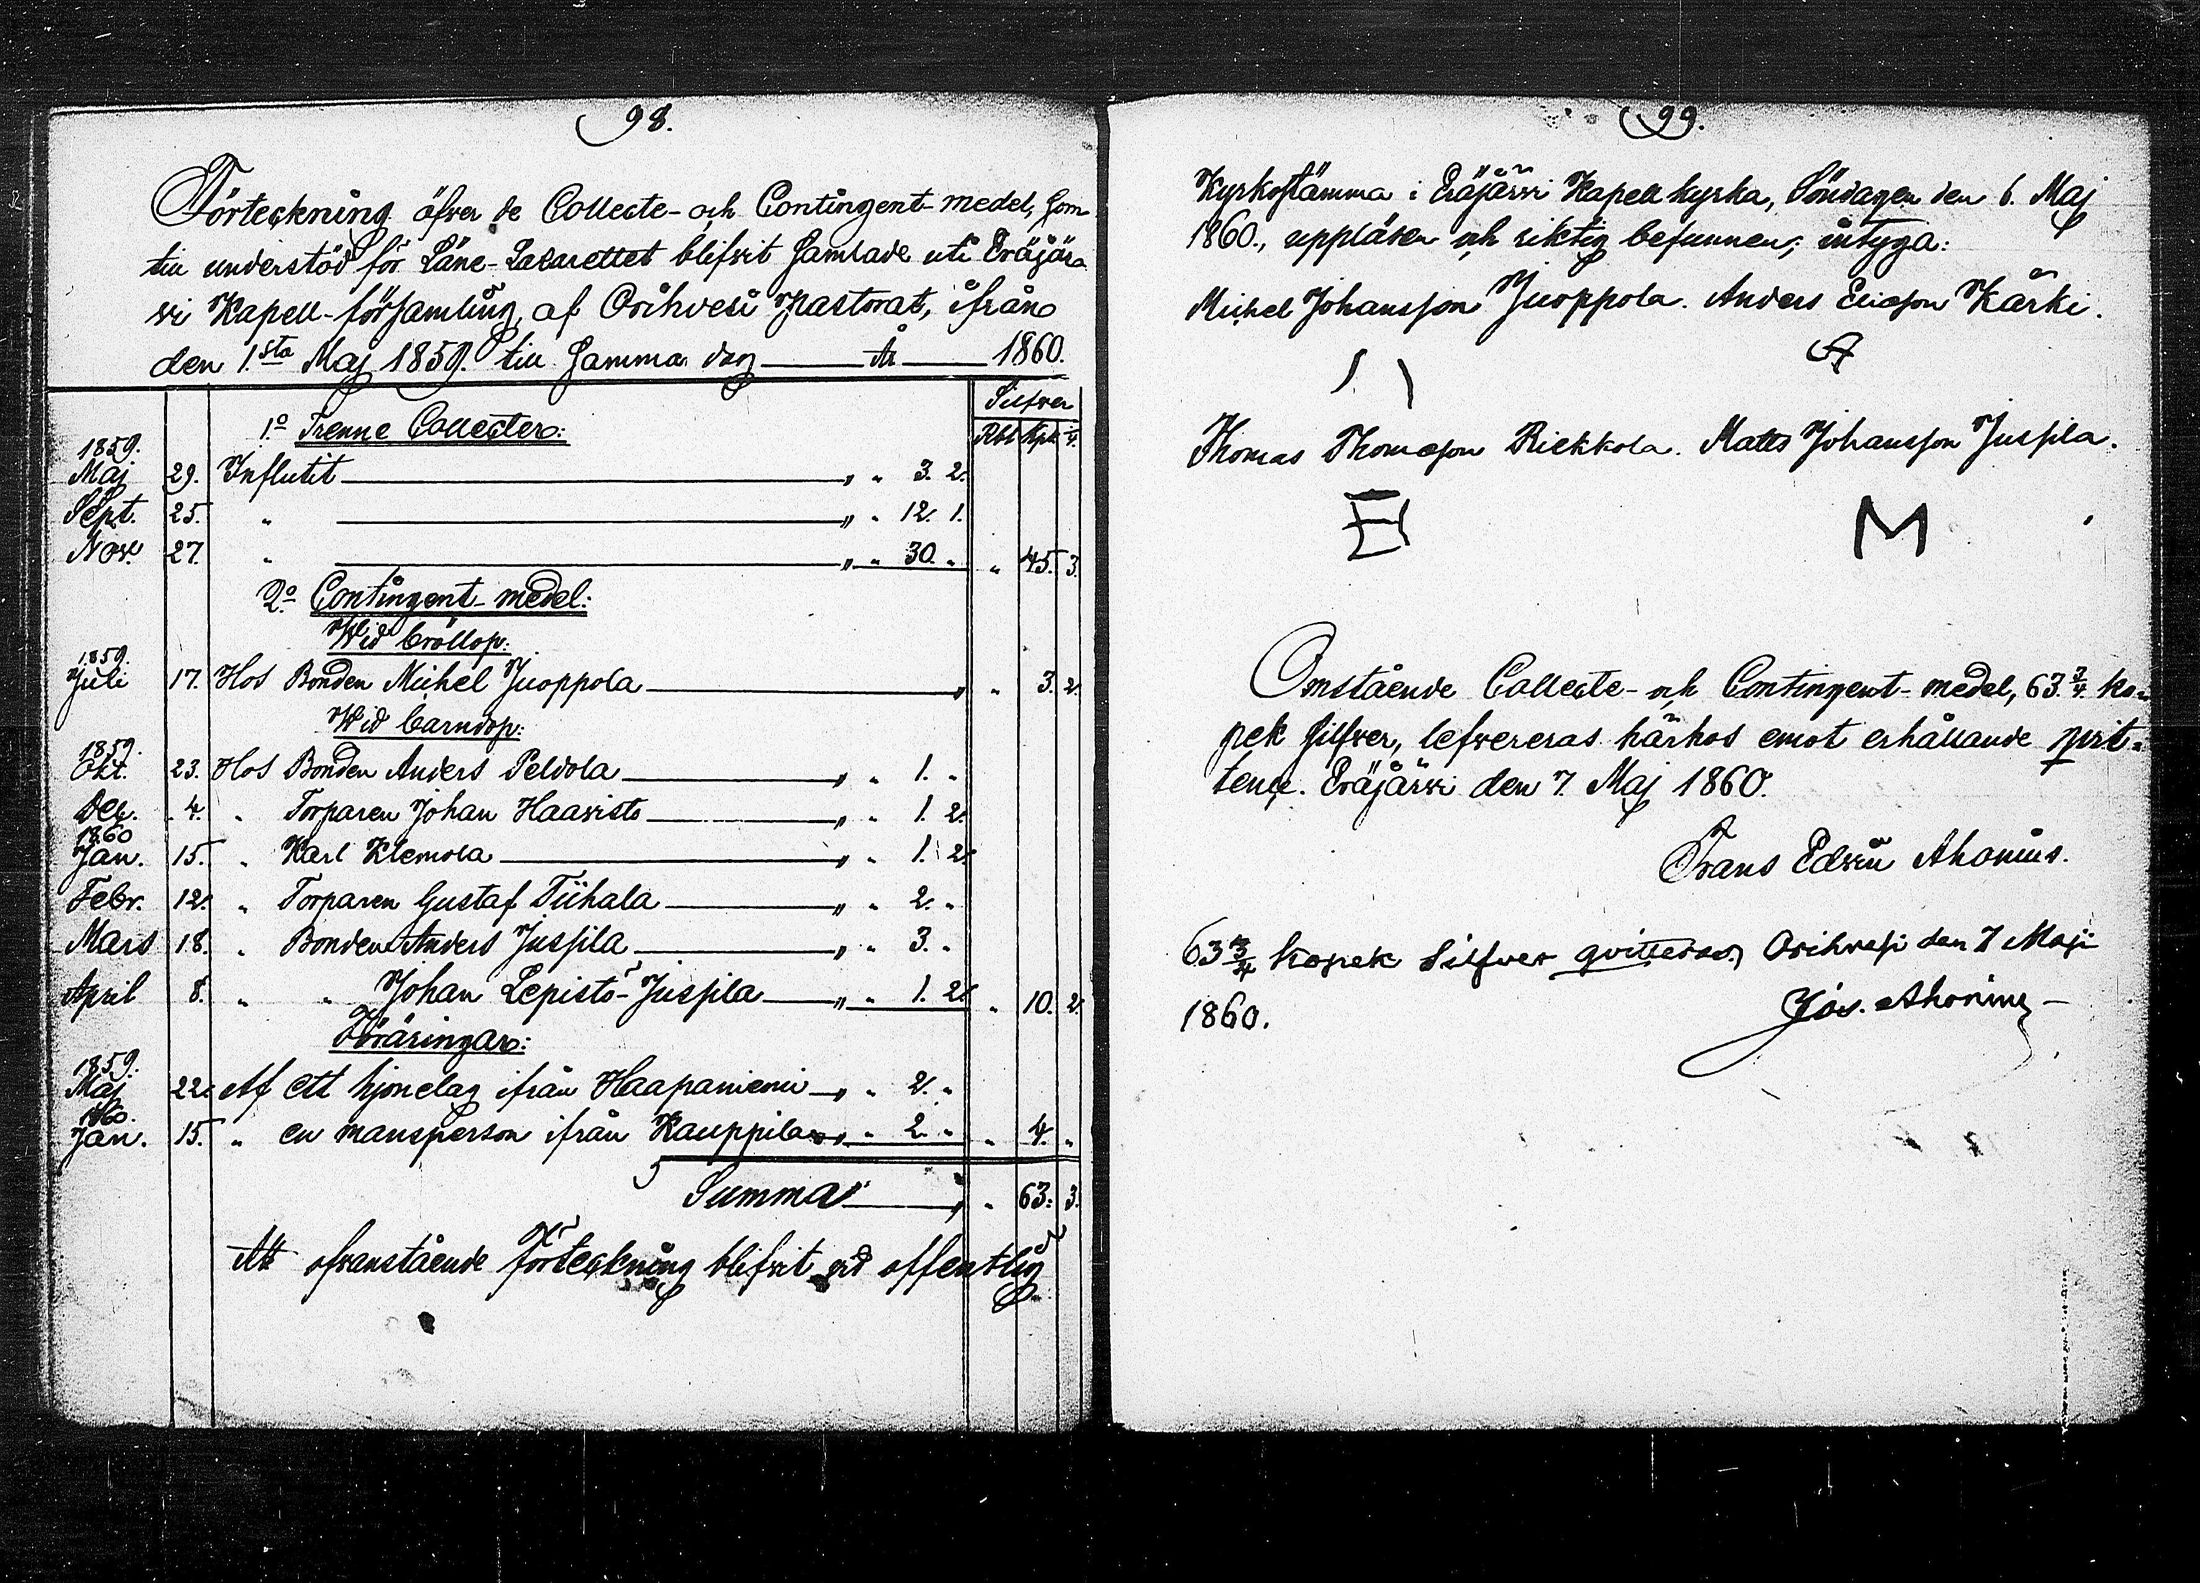 98.
Förteckning öfver de Collecte- och Contingent-medel, som
till understöd för Läne-Lazarettet blifvit samlade uti Eräjär-
vi Kapell-församling af Orihvesi Pastorat, ifrån
den 1.sta Maj 1859. till samma dag ___ År ___ 1860.
Silfver
Rbl. Kpk. 1/4.
1.o Trenne Collecter:
1859.
Maj 29. Influtit ___ „ „ 3. 2.
Sept. 25. „ ___ „ „ 12. 1.
Nov. 27. „ ___ „ „ 30. „ „ 45. 3.
2.o Contingent-medel:
Wid bröllop:
1859.
Juli 17. Hos Bonden Michel Juoppola ___ „ „ 3. 2.
Wid barndop:
1859.
Okt. 23. Hos Bonden Anders Peldola ___ „ „ 1. „
Dec. 4. „ Torparen Johan Haavisto ___ „ „ 1. 2.
1860
Jan. 15. „ Karl Klemola ___ „ „ 1. 2.
Febr. 12. „ Torparen Gustaf Tiihala ___ „ „ 2. „
Mars 18. „ Bonden Anders Jussila ___ „ „ 3. „
April 8. „ „ Johan Lepistö-Jussila ___ „ „ 1. 2. „ 10. 2.
Föräringar:
1859.
Maj 22. Af ett hjonelag ifrån Haapaniemi ___ „ „ 2. „
1860.
Jan. 15. „ en mansperson ifrån Kauppila „ „ 2. „ „ 4. „
Summa ___ „ „ 63. 3.
Att ofvanstående Förteckning blifvit vid offentlig
99.
Kyrkostämma i Eräjärvi Kapell kyrka, Söndagen den 6. Maj
1860., uppläsen och riktig befunnen; intyga:
Michel Johansson Juoppola. Anders Ericsson Kärki.
A
Thomas Thomasson Riekkola. Matts Johansson Jussila.
M
Omstående Collecte- och Contingent-medel, 63. 3/4. ko-
pek silfver, lefvereras härhos emot erhållande qvit-
tence. Eräjärvi den 7. Maj 1860.
Frans Edvin Ahonius.
63 3/4 kopek Silfver qvitteras, Orihvesi den 7 Maji
1860.
Jos. Ahonius